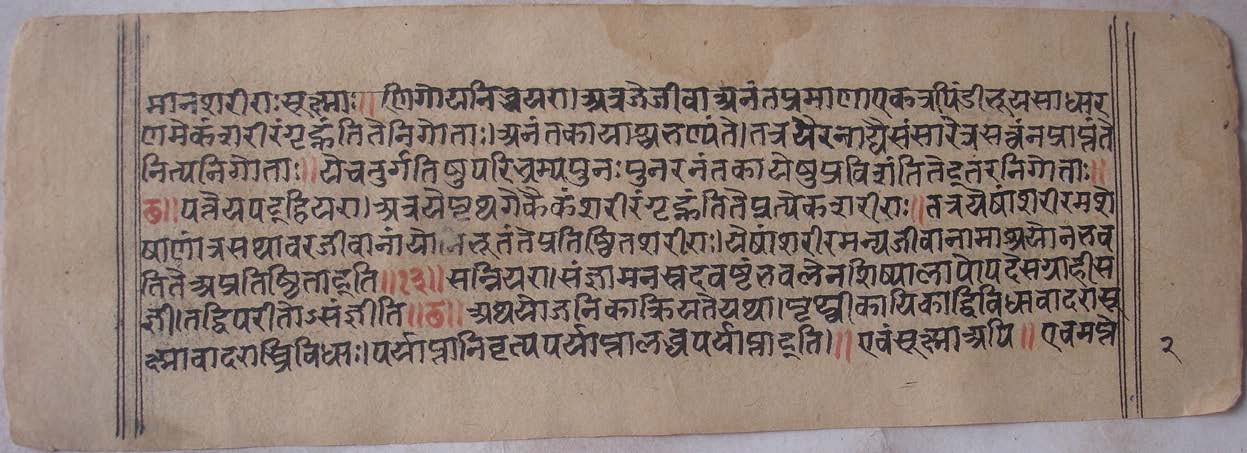 मानशरीराः सूक्ष्माः॥ णिगोयनिच्चयरा। अत्र जे जीवा अनंतप्रमाणा एकत्र पिंडीभूय साधार
णमेकं शरीरं गृह्णंति ते निगोताः। अनंतकायाश्च भण्यंते। तत्र यैरनाद्यैसंसारे त्रसत्वं न प्राप्नं ते
नित्यनिगोताः॥ ये चतुर्गतिषु परिभ्रम्य पुनः पुनरनंतकायेषु प्रविशंति ते इतरनिगोताः॥
छ॥ पत्तेयपइट्ठियरा। अत्र ये पृथगेकैकं शरीरं गृह्णंति ते प्रत्येकशरीराः॥ तत्र येषां शरीरमशे
षाणां त्रसथावरजीवानां योनिभूतं ते प्रतिष्ठितशरीराः। येषां शरीरमन्यजीवानामाश्रयो न भव
ति ते अप्रतिष्ठिता इति॥१३॥ सन्नियरा। संज्ञा मनस्तदवष्टंभबलेन शिष्यालापोपदेसग्राही सं
ज्ञी। तद्विपरीतोऽसंज्ञीति॥छ॥ अथ योजनिका क्रियते यथा। पृथ्वीकायिका द्विविधा बादरासू
क्ष्मा बादरास्त्रिविधाः। पर्याप्ता निवृत्यपर्याप्ता लब्ध्यपर्याप्ता इति।॥ एवं सूक्ष्मा अपि॥ एवमप्ते
२